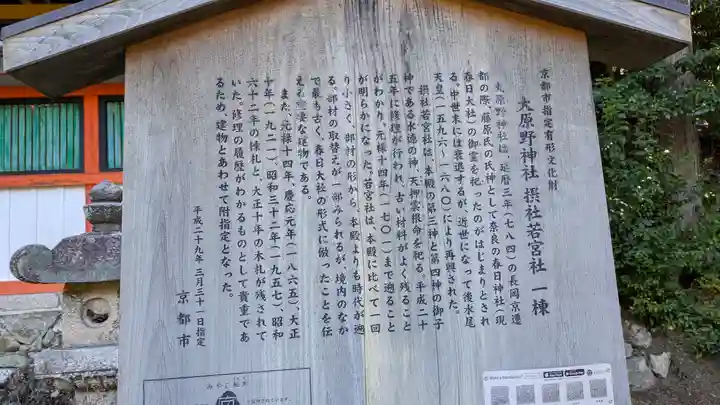 京都市指定有形文化財
大原野神社 摂社若宮社 一棟
大原野神社は、延暦三年(七八四)の長岡京遷
都の際、藤原氏の氏神として奈良の春日神社(現
春日大社)の御霊を祀ったのがはじまりとされ
る。中世末には衰退するが、近世になって後水尾
天皇(一五九六～一六八〇)により再興された。
摂社若宮社は、本殿の第三神と第四神の御子
神である水徳の神、天押雲根命を祀る。平成二十
五年に修理が行われ、古い材料がよく残ること
がわかり、元禄十四年(一七〇一)まで遡ること
が明らかになった。若宮社は、本殿に比べて一回
り小さく、部材の形から、本殿よりも時代が遡
る。部材の取替えが一部みられるが、境内のなか
で最も古く、春日大社の形式に倣ったことを伝
える重要な建物である。
また、元禄十四年、慶応元年(一八六五)、大正
十年(一九二一)、昭和三十二年(一九五七)、昭和
六十二年の棟札と、大正十年の木札が残されて
いた。修理の履歴がわかるものとして貴重であ
るため、建物とあわせて附指定となった。
平成二十九年 三月三十一日指定
京都市